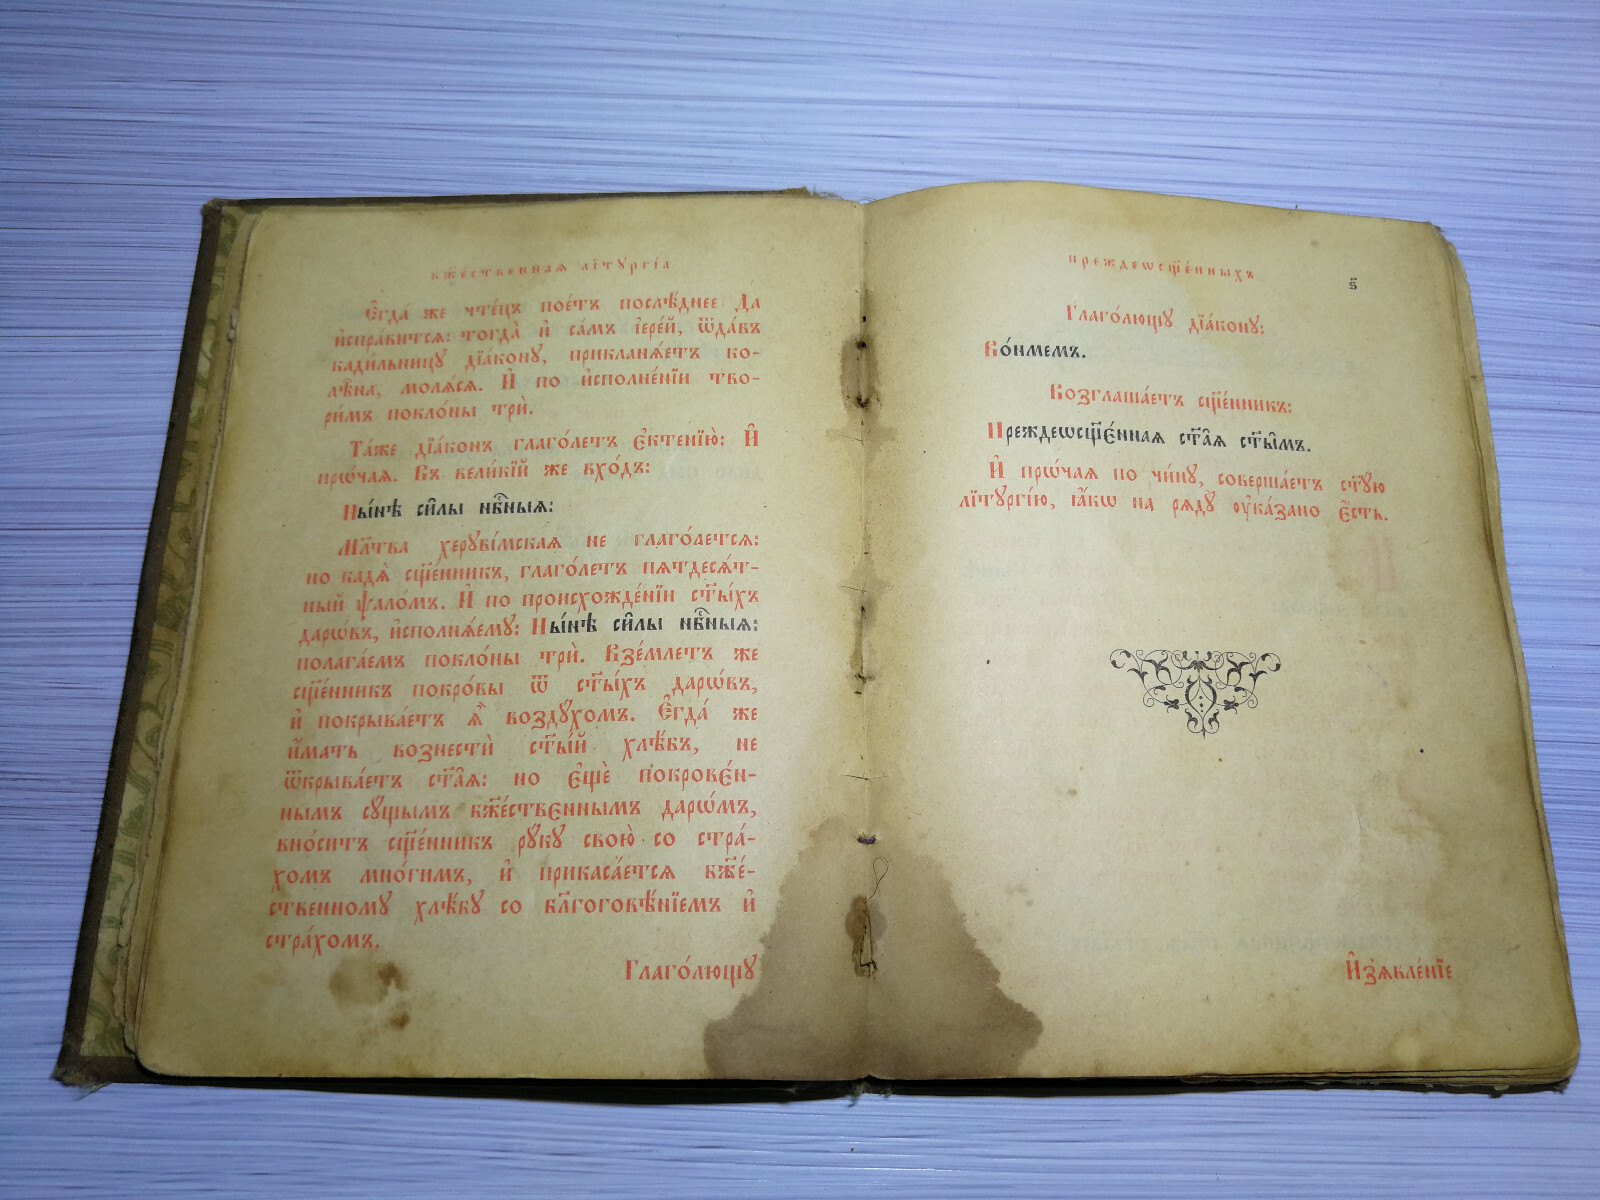 бж҃е́ственнаѧ лїтꙋргі́а
Є҆гда́ же чте́цъ пое́тъ послѣ́днее Да
и҆спра́витсѧ: тогда̀ и҆ са́мъ і҆ере́й, ѿда́въ
кади́льницꙋ дїа́конꙋ, приклонѧ́етъ ко-
лѣ̑на, молѧ́сѧ. И҆ по и҆сполне́нїи тво-
ри́мъ покло́ны трѝ.
Та́же дїа́конъ глаго́летъ є҆ктенїю̀: И҆
прѡ́чаѧ. Въ вели́кїй же вхо́дъ:
Ны́нѣ си̑лы нбⷭ҇ныѧ:
Мл҃тва херꙋві́мская не глаго́летсѧ:
но кадѧ̀ сщ҃е́нникъ, глаго́летъ пѧтдесѧ́т-
ный ѱало́мъ. И҆ по происхожде́нїи ст҃ы́хъ
дарѡ́въ, и҆сполнѧ́емꙋ: Ны́нѣ си̑лы нбⷭ҇ныѧ:
полага́емъ покло́ны трѝ. Взе́млетъ же
сщ҃е́нникъ покро́вы ѿ ст҃ы́хъ дарѡ́въ,
и҆ покрыва́етъ ѧ҆̀ во́здꙋхомъ. Є҆гда́ же
и҆́мать вознестѝ ст҃ы́й хлѣ́бъ, не
ѿкрыва́етъ ст҃а̑ѧ: но є҆щѐ покрове́н-
нымъ сꙋ́щымъ бж҃е́ствєннымъ дарѡ́мъ,
вно́ситъ сщ҃е́нникъ рꙋ́кꙋ свою̀ со стра́-
хомъ мно́гимъ, и҆ прикаса́етсѧ бж҃е́-
ственномꙋ хлѣ́бꙋ со бл҃гоговѣ́нїемъ и҆
стра́хомъ.
Глаго́лющꙋ
преждеѡсщ҃е́нныхъ
ѕ҃
Глаго́лющꙋ дїа́конꙋ:
Во́нмемъ.
Возглаша́етъ сщ҃е́нникъ:
Преждеѡсщ҃є́ннаѧ ст҃а̑ѧ ст҃ы̑мъ.
И҆ прѡ́чаѧ по чи́нꙋ, соверша́етъ ст҃ꙋ́ю
лїтꙋргі́ю, ꙗ҆́кѡ на рѧдꙋ̀ ѹ҆ка́зано є҆́сть.
И҆з̾ѧвле́нїе